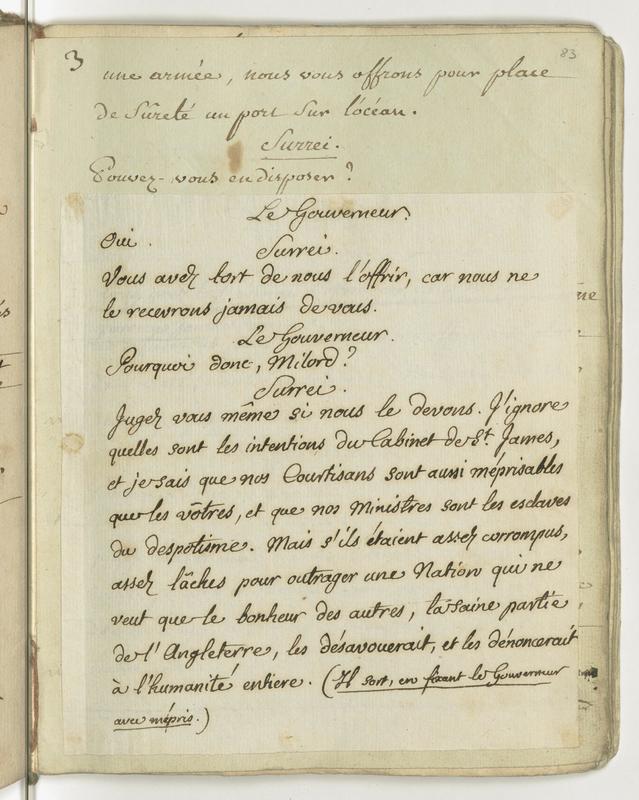 3
83
une armée, nous vous offrons pour place
de Sûreté un port Sur l'océan.
Surrei.
Pouvez-vous en disposer ?
Le Gouverneur.
Oui.
Surrei.
Vous avez tort de nous l'offrir, car nous ne
le recevrons jamais de vous.
Le Gouverneur.
Pourquoi donc, Milord ?
Surrei.
Jugez vous même si nous le devons. J'ignore
quelles sont les intentions du Cabinet de St. James,
et je sais que nos Courtisans sont aussi méprisables
que les vôtres, et que nos Ministres sont les esclaves
du despotisme. Mais s'ils étaient assez corrompus,
assez lâches pour outrager une Nation qui ne
veut que le bonheur des autres, la saine partie
de l'Angleterre, les désavouerait, et les dénoncerait
à l'humanité entiere. (Il sort, en fixant le Gouverneur
avec mépris.)